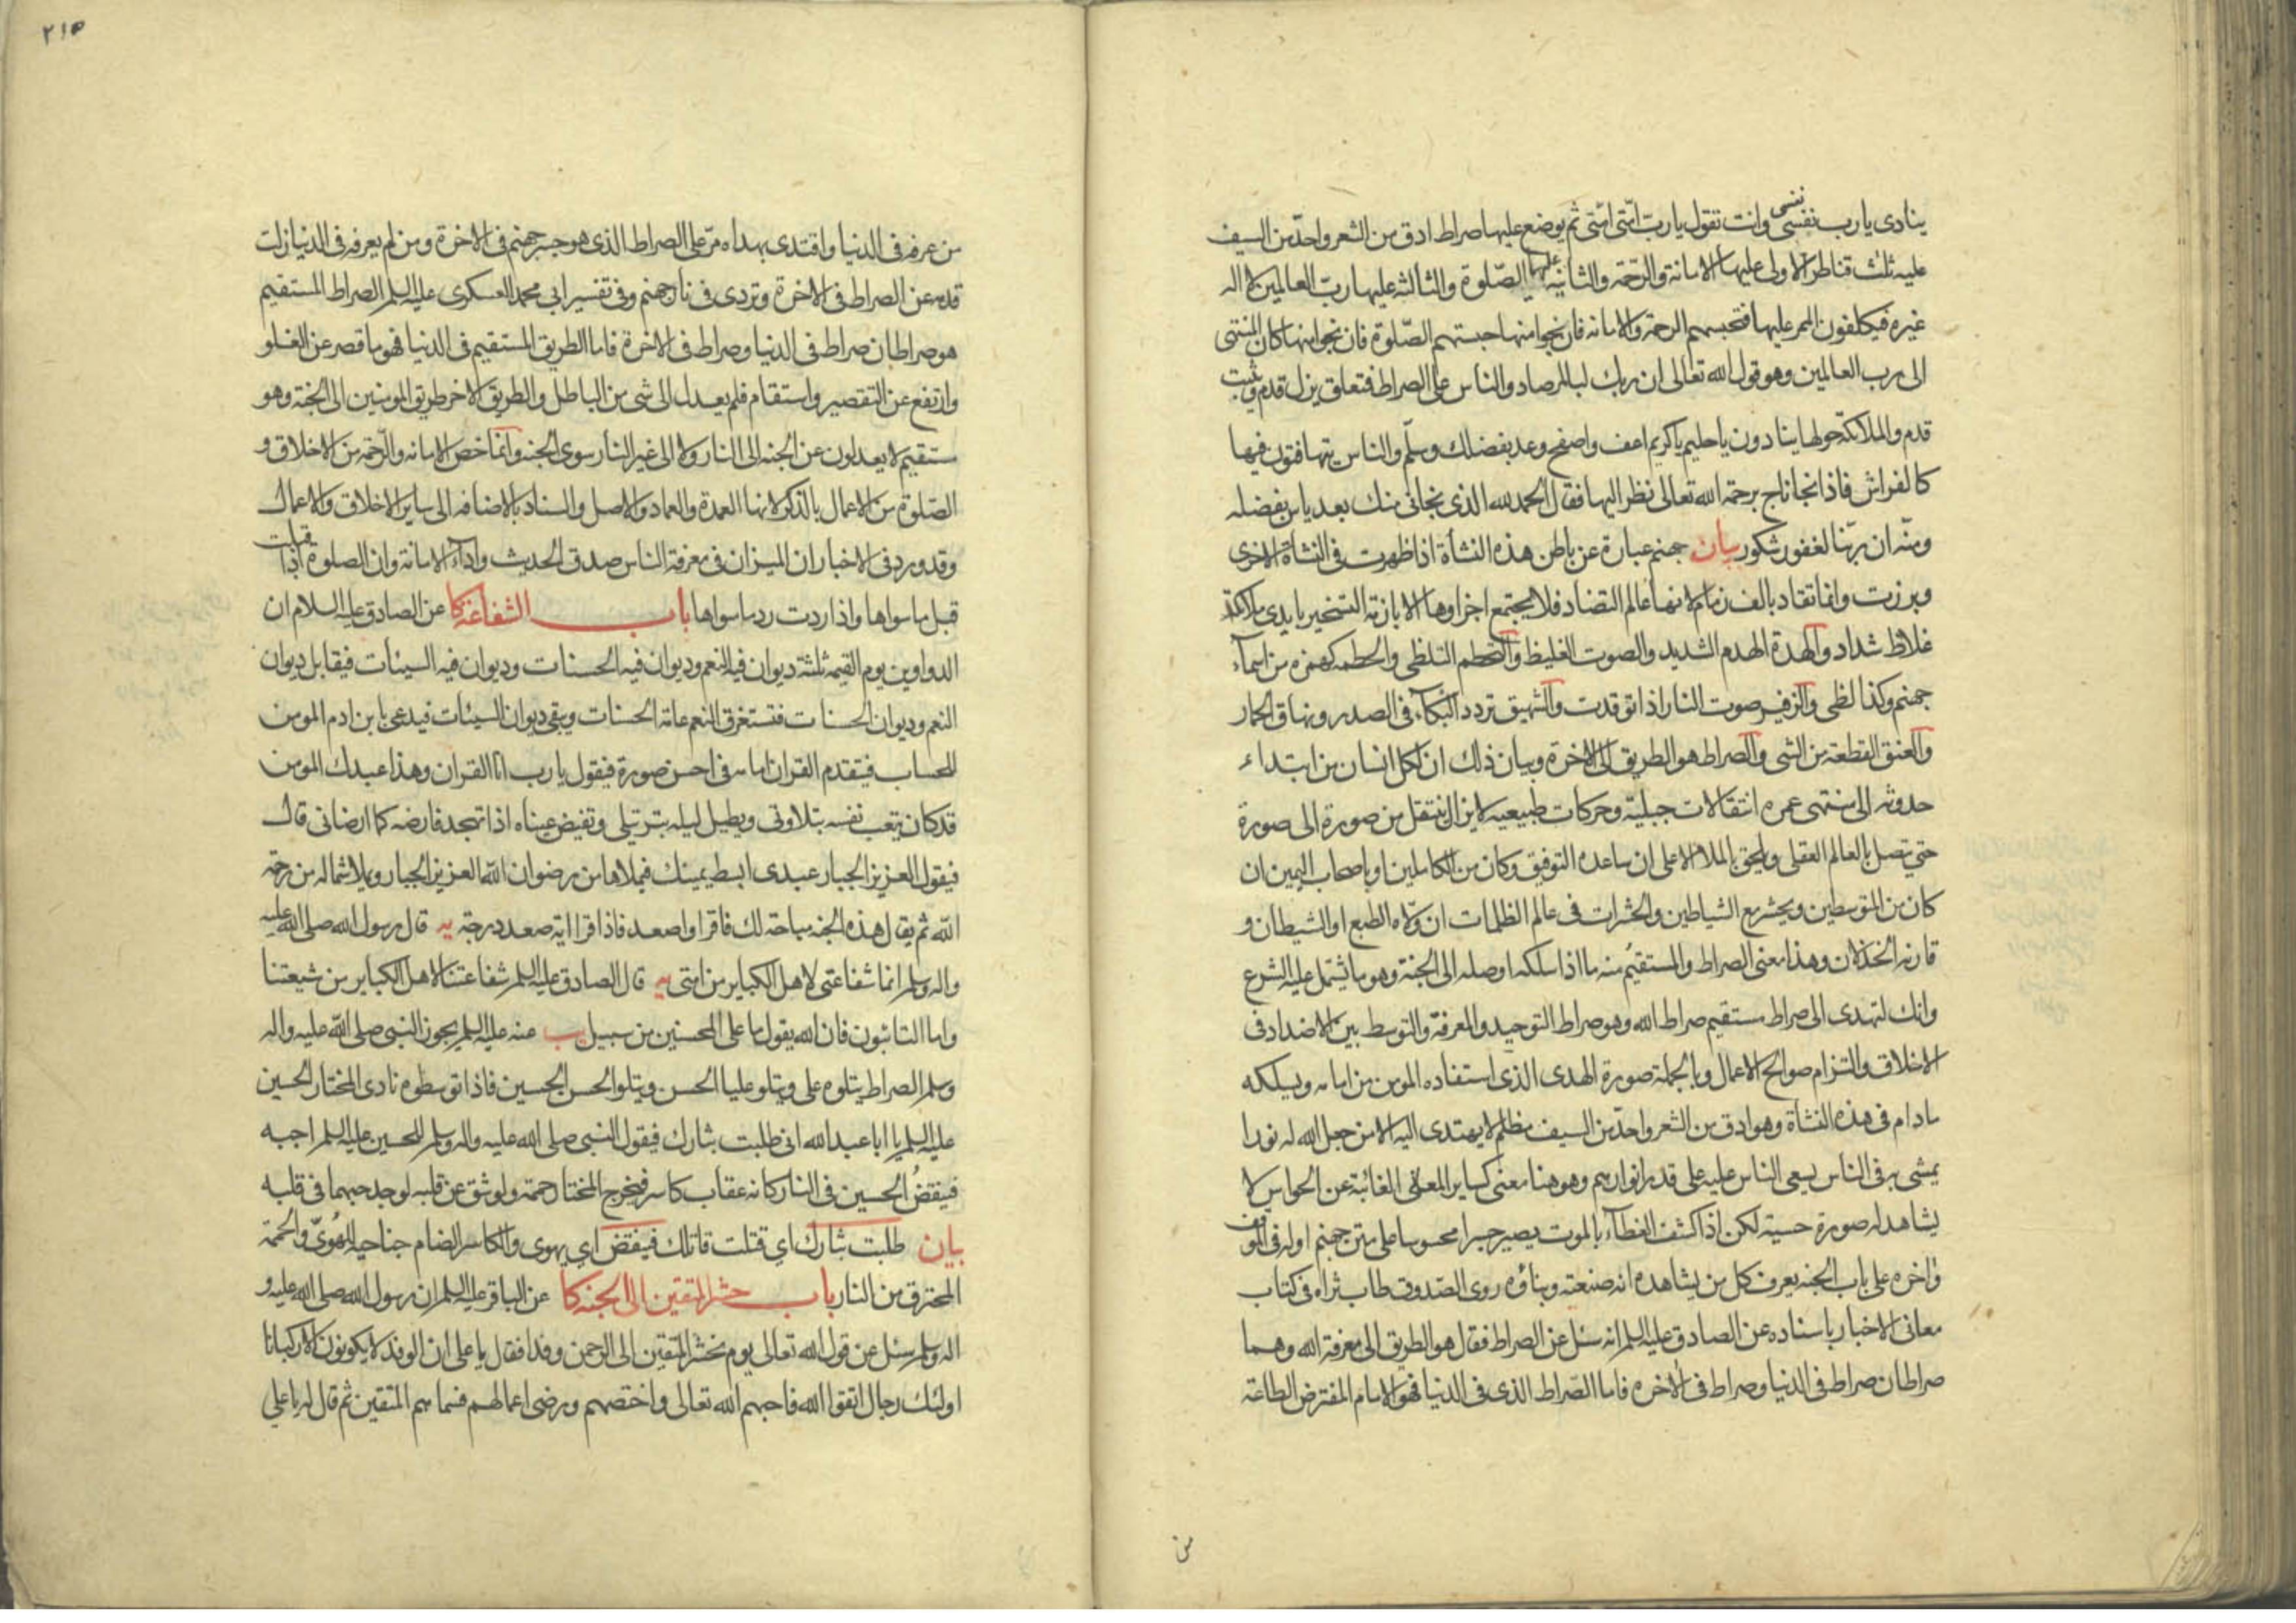 ينادى يا رب نفسى نفسى وانت تقول يا رب امّتى امّتى ثم يوضع عليها صراط ادق من الشعر واحدّ من السيف
عليه ثلث قناطر الاولى عليها الامانة والرّحمة والثانية عليها الصّلوة والثالثة عليها ربّ العالمين لا اله
غيره فيكلفون الممر عليها فتحبسهم الرحمة والامانه فان نجوا منها حبستهم الصّلوة فان نجوا منها كان المنتهى
الى رب العالمين وهو قول الله تعالى ان ربك لبالمرصاد والناس على الصراط فتعلق يزل قدم ويثبت
قدم والملائكة حولها ينادون يا حليم يا كريم اعف واصفح وعد بفضلك وسلّم والناس يتهافتون فيها
كالفراش فاذا نجا ناج برحمة الله تعالى نظر اليها فقال الحمد لله الذى نجانى منك بعد ياس بفضله
ومنّه ان ربّنا لغفور شكور بيان جهنم عبارة عن باطن هذه النشأة اذا ظهرت فى النشأة الاخرى
وبرزت وانما تقاد بالف زمام لانها عالم التضاد فلا يجتمع اجزاوها الا بازمّة التسخير بايدى ملائكة
غلاظ شداد والهدة الهدم الشديد والصوت الغليظ والتحطم التلظى والحطمه كهمزه من اسماء
جهنم وكذا لظى والزفير صوت النار اذا توقدت والشهيق تردد البكاء فى الصدر ونهاق الحمار
والعنق القطعة من الشى والصراط هو الطريق الى الاخرة وبيان ذلك ان لكل انسان من ابتداء
حدوثه الى منتهى عمره انتقالات جبليّة وحركات طبيعيه لا يزال ينتقل من صورة الى صورة
حتى يتصل بالعالم العقلى ويلحق بالملا الاعلى ان ساعده التوفيق وكان من الكاملين او باصحاب اليمين ان
كان من المتوسطين ويحشر مع الشياطين والحشرات فى عالم الظلمات ان ولّاه الطبع او الشيطان و
قارنه الخذلان وهذا معنى الصراط والمستقيم منه ما اذا سلكه اوصله الى الجنة وهو ما يشتمل عليه الشرع
وانك لتهدى الى صراط مستقيم صراط الله وهو صراط التوحيد والمعرفة والتوسط بين الاضداد فى
الاخلاق والتزام صوالح الاعمال وبالجملة صورة الهدى الذى استفاده المومن من امامه ويسلكه
مادام فى هذه النشأة وهو ادق من الشعر واحدّ من السيف مظلم لا يهتدى اليه الا من جعل الله له نورا
يمشى به فى الناس يسعى الناس عليه على قدر انوارهم وهو هنا معنى كساير المعانى الغائبة عن الحواس لا
يشاهد له صورة حسية لكن اذا كشف الغطاء بالموت يصير جسرا محسوسا على متن جهنم اوله فى الموقف
واخره على باب الجنه يعرف كل من يشاهده انه صنعته وبناؤه روى الصّدوق طاب ثراه فى كتاب
معانى الاخبار باسناده عن الصادق عليه السلم انه سئل عن الصراط فقال هو الطريق الى معرفة الله وهما
صراطان صراط فى الدنيا وصراط فى الاخره فاما الصّراط الذى فى الدنيا فهو الامام المفترض الطاعة
من
٢١٥
من عرفه فى الدنيا واقتدى بهداه مرّ على الصراط الذى هو جسر جهنم فى الاخرة ومن لم يعرفه فى الدنيا زلت
قدمه عن الصراط فى الاخرة وتردى فى نار جهنم وفى تفسير ابى محمد العسكرى عليه السلم الصراط المستقيم
هو صراطان صراط فى الدنيا وصراط فى الاخرة فاما الطريق المستقيم فى الدنيا فهو ما قصر عن الغلو
وارتفع عن التقصير واستقام فلم يعدل الى شى من الباطل والطريق الاخر طريق المومنين الى الجنة وهو
مستقيم لا يعدلون عن الجنه الى النار ولا الى غير النار سوى الجنه وانما خص الامانه والرّحمة من الاخلاق و
الصّلوة من الاعمال بالذكر لانها العمدة والعماد والاصل والسناد بالاضافه الى ساير الاخلاق والاعمال
وقد ورد فى الاخبار ان الميزان فى معرفة الناس صدق الحديث واداء الامانة وان الصلوة اذا قبلت
قبل ما سواها واذا ردت رد ما سواها باب الشفاعة كا عن الصادق عليه السلام ان
الدواوين يوم القيمه ثلثة ديوان فيه النعم وديوان فيه الحسنات وديوان فيه السيئات فيقابل ديوان
النعم وديوان الحسنات فتستغرق النعم عامة الحسنات ويبقى ديوان السيئات فيدعى بابن ادم المومن
للحساب فيتقدم القران امامه فى احسن صورة فيقول يا رب انا القران وهذا عبدك المومن
قد كان يتعب نفسه بتلاوتى ويطيل ليله بترتيلى وتفيض عيناه اذا تهجد فارضه كما ارضانى قال
فيقول العزيز الجبار عبدى ابسط يمينك فيملاها من رضوان الله العزيز الجبار ويملا شماله من رحمة
الله ثم يقال هذه الجنه مباحة لك فاقرا واصعد فاذا قرا اية صعد درجة يه قال رسول الله صلى الله عليه
واله وسلم انما شفاعتى لاهل الكباير من امتى يه قال الصادق عليه السلم شفاعتنا لاهل الكباير من شيعتنا
واما التائبون فان الله يقول ما على المحسنين من سبيل يب عنه عليه السلم يجوز النبى صلى الله عليه واله
وسلم الصراط يتلوه على ويتلو عليا الحسن ويتلو الحسن الحسين فاذا توسطوه نادى المختار الحسين
عليه السلم يا ابا عبد الله انى طلبت بثارك فيقول النبى صلى الله عليه واله وسلم للحسين عليه السلم اجبه
فينقضّ الحسين فى النار كانه عقاب كاسر فيخرج المختار حممة ولو شق عن قلبه لوجد حبهما فى قلبه
بيان طلبت بثارك اي قتلت قاتلك فينقض اي يهوى والكاسر الضام جناحيه للهُوىّ والحممة
المحترق من النار باب حشر المتقين الى الجنه كا عن الباقر عليه السلم ان رسول الله صلى الله عليه و
اله وسلم سئل عن قول الله تعالى يوم نحشر المتقين الى الرحمن وفدا فقال يا على ان الوفد لا يكونون الا ركبانا
اولئك رجال اتقوا الله فاحبهم الله تعالى واختصهم ورضى اعمالهم فسماهم المتقين ثم قال له يا على